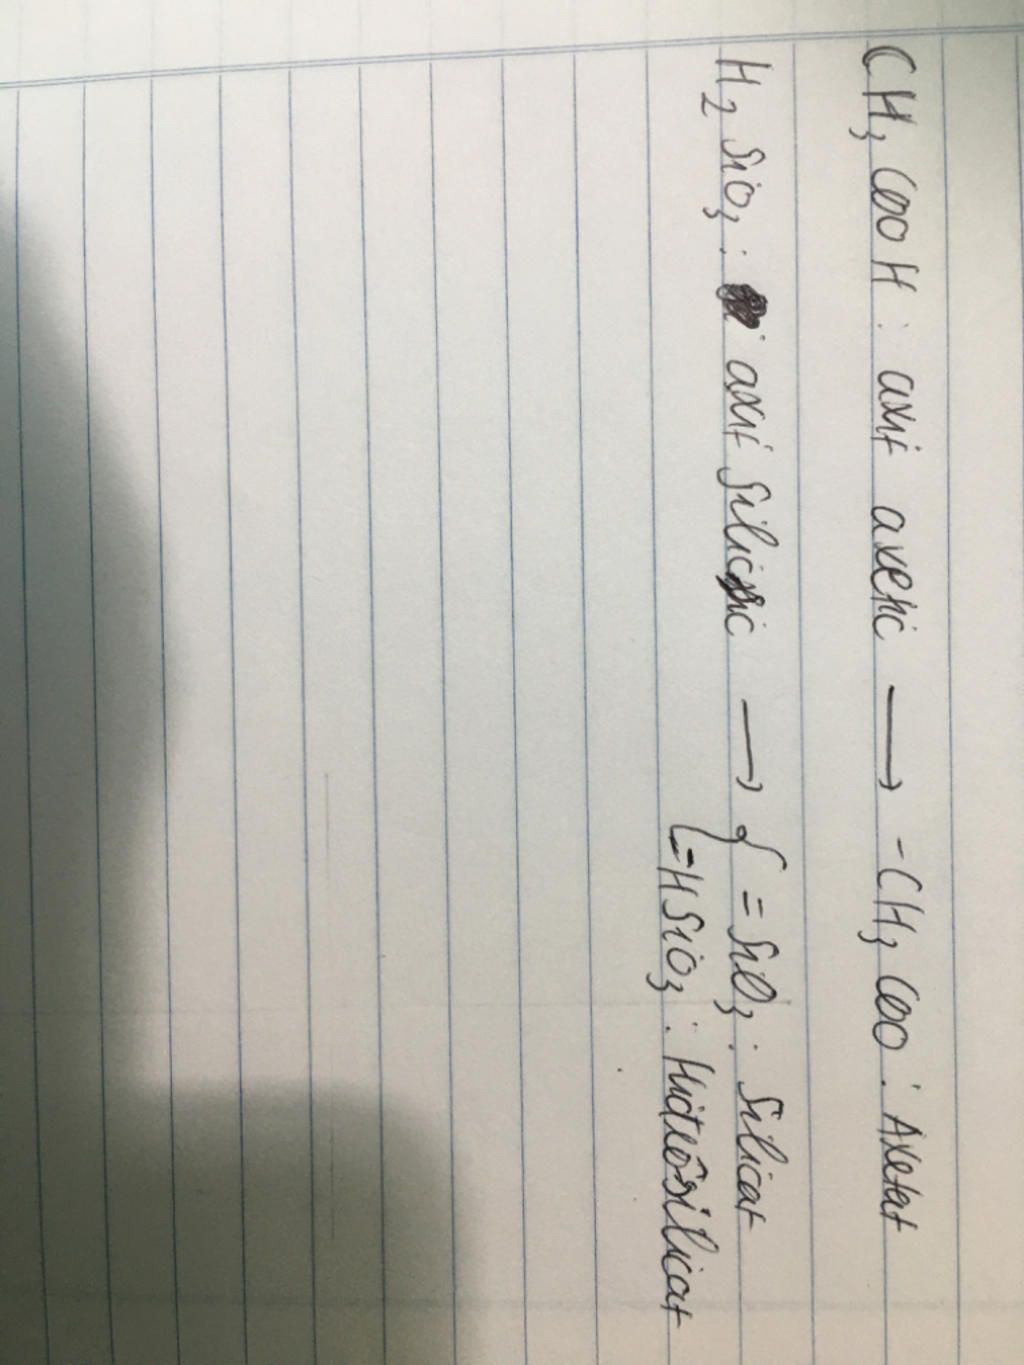 CH3COOH : axit axetic → - CH3COO : Axetat
H2SiO3 : axit silicic → { = SiO3 : Silicat
- HSiO3 : Hiđrôsilicat